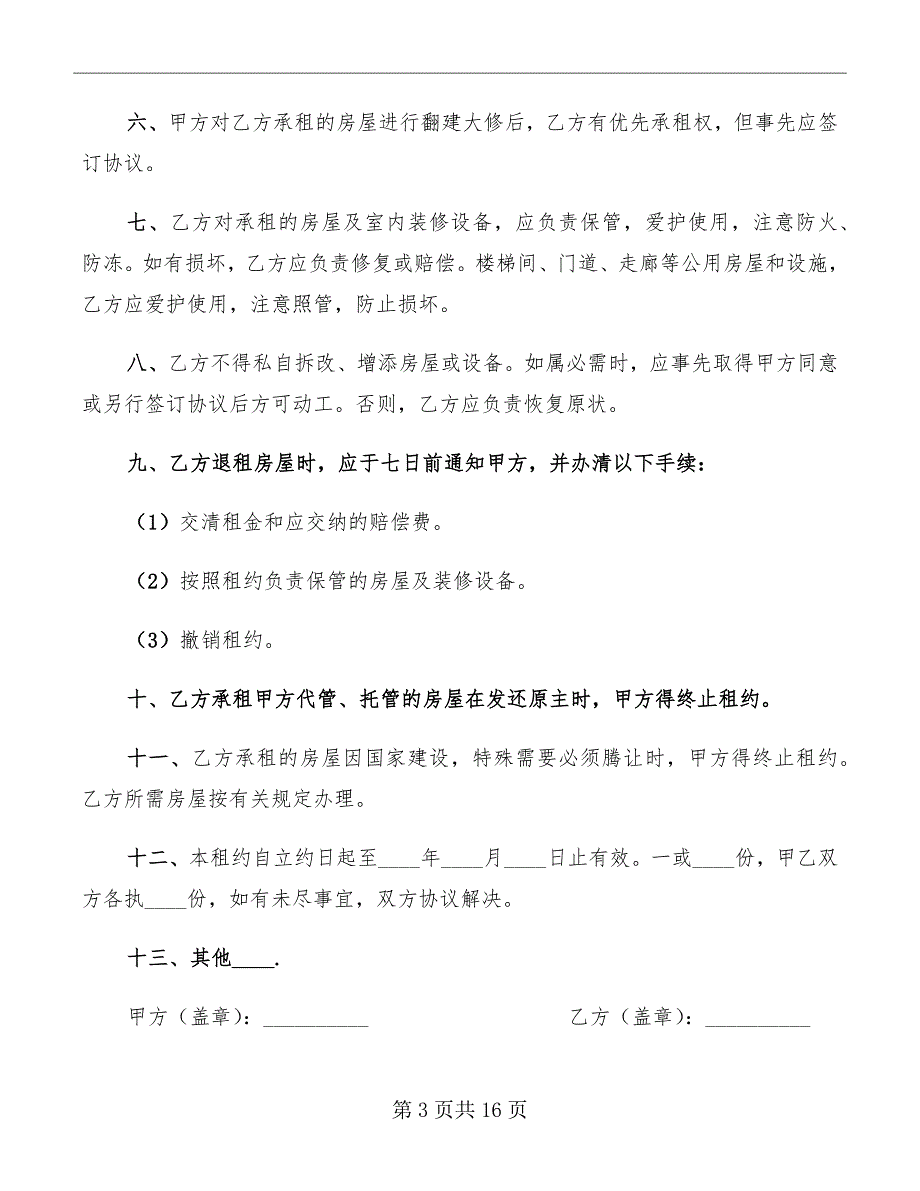 六、甲方对乙方承租的房屋进行翻建大修后，乙方有优先承租权，但事先应签
订协议。
七、乙方对承租的房屋及室内装修设备，应负责保管，爱护使用，注意防火、
防冻。如有损坏，乙方应负责修复或赔偿。楼梯间、门道、走廊等公用房屋和设施，
乙方应爱护使用，注意照管，防止损坏。
八、乙方不得私自拆改、增添房屋或设备。如属必需时，应事先取得甲方同意
或另行签订协议后方可动工。否则，乙方应负责恢复原状。
九、乙方退租房屋时，应于七日前通知甲方，并办清以下手续：
（1）交清租金和应交纳的赔偿费。
（2）按照租约负责保管的房屋及装修设备。
（3）撤销租约。
十、乙方承租甲方代管、托管的房屋在发还原主时，甲方得终止租约。
十一、乙方承租的房屋因国家建设，特殊需要必须腾让时，甲方得终止租约。
乙方所需房屋按有关规定办理。
十二、本租约自立约日起至____年____月____日止有效。一或____份，甲乙双
方各执____份，如有未尽事宜，双方协议解决。
十三、其他____.
甲方（盖章）：__________ 乙方（盖章）：__________
第 3 页共 16 页